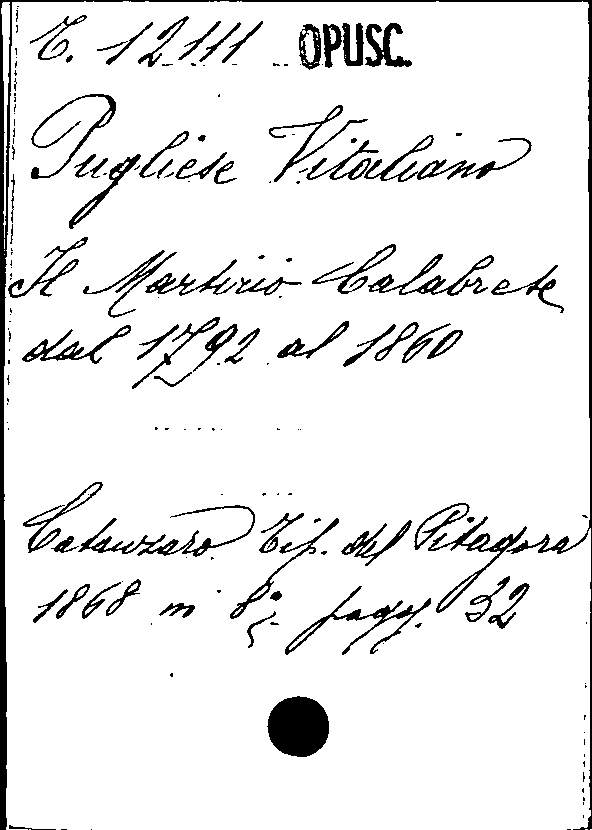 T. 12111 OPUSC.
Pugliese Vitaliano
Il Martirio Calabrese
dal 1792 al 1860
Catanzaro Tip. del Pitagora
1868 in 8° pagg. 32